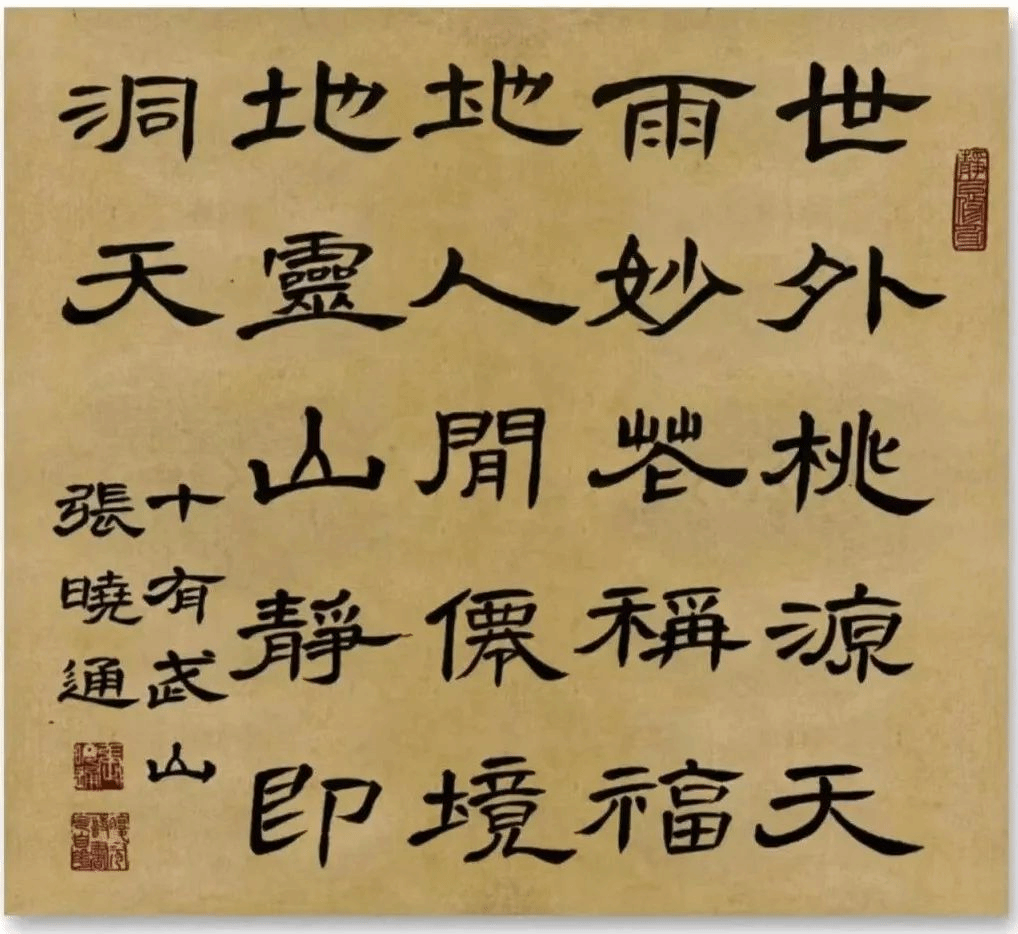 靜以修身
世外桃源天
雨妙花稱福
地人閒僊境
地靈山靜即
洞天
十有武山
張曉通